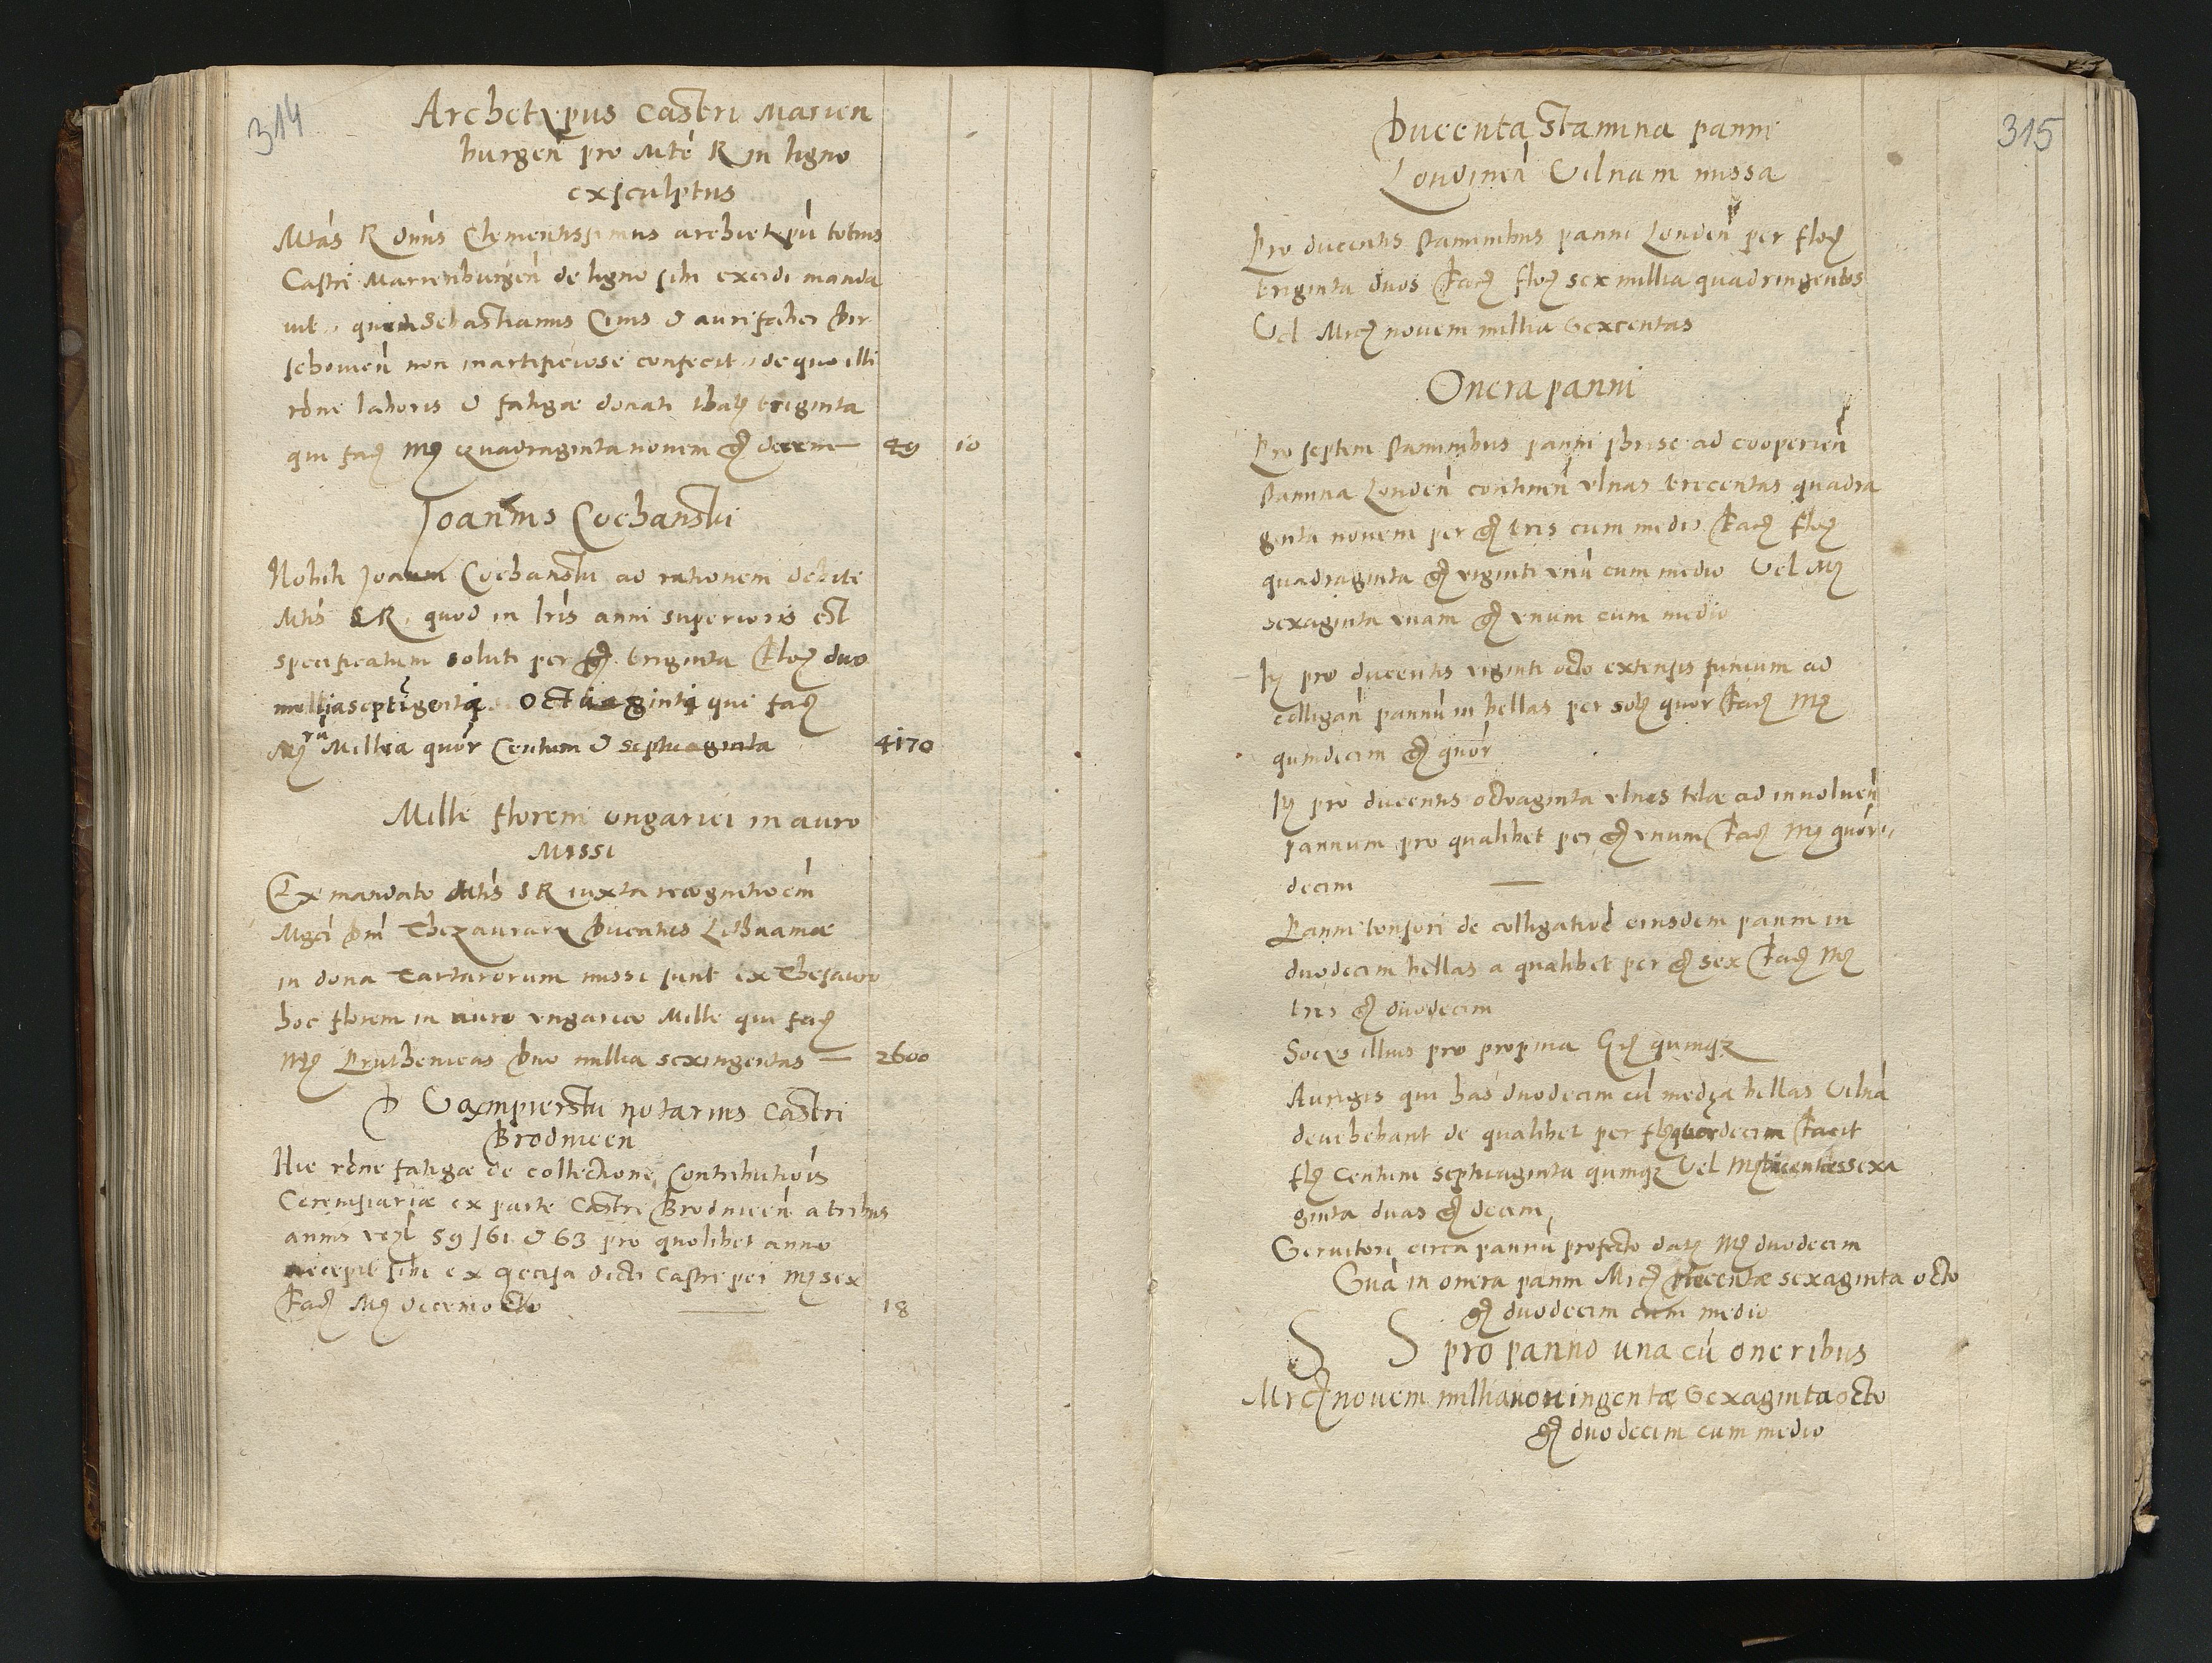 314
Archetypus Castri Marien
burgeń pro Mte R in ligno
exsculptus
Mtas R dnns Clementissimus archetypū totius
Castri Marienburgeń de ligno sibi excidi manda
vit quem Sebastianus Civis & aurifaber Dir
schovień non inartificiose confecit de quo illi
rōne laboris & fatigæ donati thal triginta
qui fać Mrć quadraginta novem gr decem — 49 10
Joannis Cochanski
Nobili Joanni Cochanski ad rationem debiti
Mtis S R quod in lris anni superioris est
specificatum soluti per gr triginta Floć duo
millia septigenti octuaginti qui fać
Mrć Millia quor Centum & septuaginta 4170
Mille floreni ungarici in auro
Missi
Ex mandato Mtis S R iuxta recognitioem
Mgci Dni Thezaurary Ducatus Lithuaniæ
in dona Tartarorum missi sunt ex Thesauro
hoc floreni in auro ungarico Mille qui fać
Mrć Pruthenicas Duo millia sexingentas — 2600
notarius Castri
Brodnicen
Hic rōne fatigæ de collectione Contributiois
Ceremsiariæ ex parte Castri Brodniceń a tribus
annis vezl 59 / 61 & 63 pro quolibet anno
recepit sibi ex dicti Castri per Mrć sex
Fać Mrć decem octo — 18
315
Ducenta Stamina panni
Londineń Vilnam missa
Pro ducentis staminibus panni Londeń per floć
triginta duos Fać floć sex millia quadringentos
Vel Mrć novem millia sexcentas
Onera panni
Pro septem staminibus panni phrise ad cooperień
stamina Londeń contineń ulnas trecentas quadra
ginta novem per gr tris cum medio Fać floć
quadraginta gr viginti unū cum medio Vel Mrć
sexaginta unam gr unum cum medio
It pro ducentis viginti octo extensis funium ad
colligań pannū in bellas per sol quor Fać Mrć
quindecim gr quor
It pro ducentis octvaginta ulnis telæ ad involueń
pannum pro qualibet per gr unum Fać Mrć quor
decim —
Panni tonsori de colligatiōe eiusdem panni in
duodecim bellas a qualibet per gr sex Fać Mrć
tris gr duodecim
Socys illius pro propina Grć quinqz
Aurigis qui has duodecim cū media bellas Vilnā
devehebant de qualibet per flo quordecim Facit
floć Centum septuaginta quinqz Vel Mrć ducentas sexa
ginta duas gr decim
Servitori circa pannū profecto dat Mrć duodecim
Sūa in onera panni Mrć trecentæ sexaginta octo
gr duodecim cum medio
S S pro panno una cū oneribus
Mrć novem millia noningentæ Sexaginta octo
gr duodecim cum medio